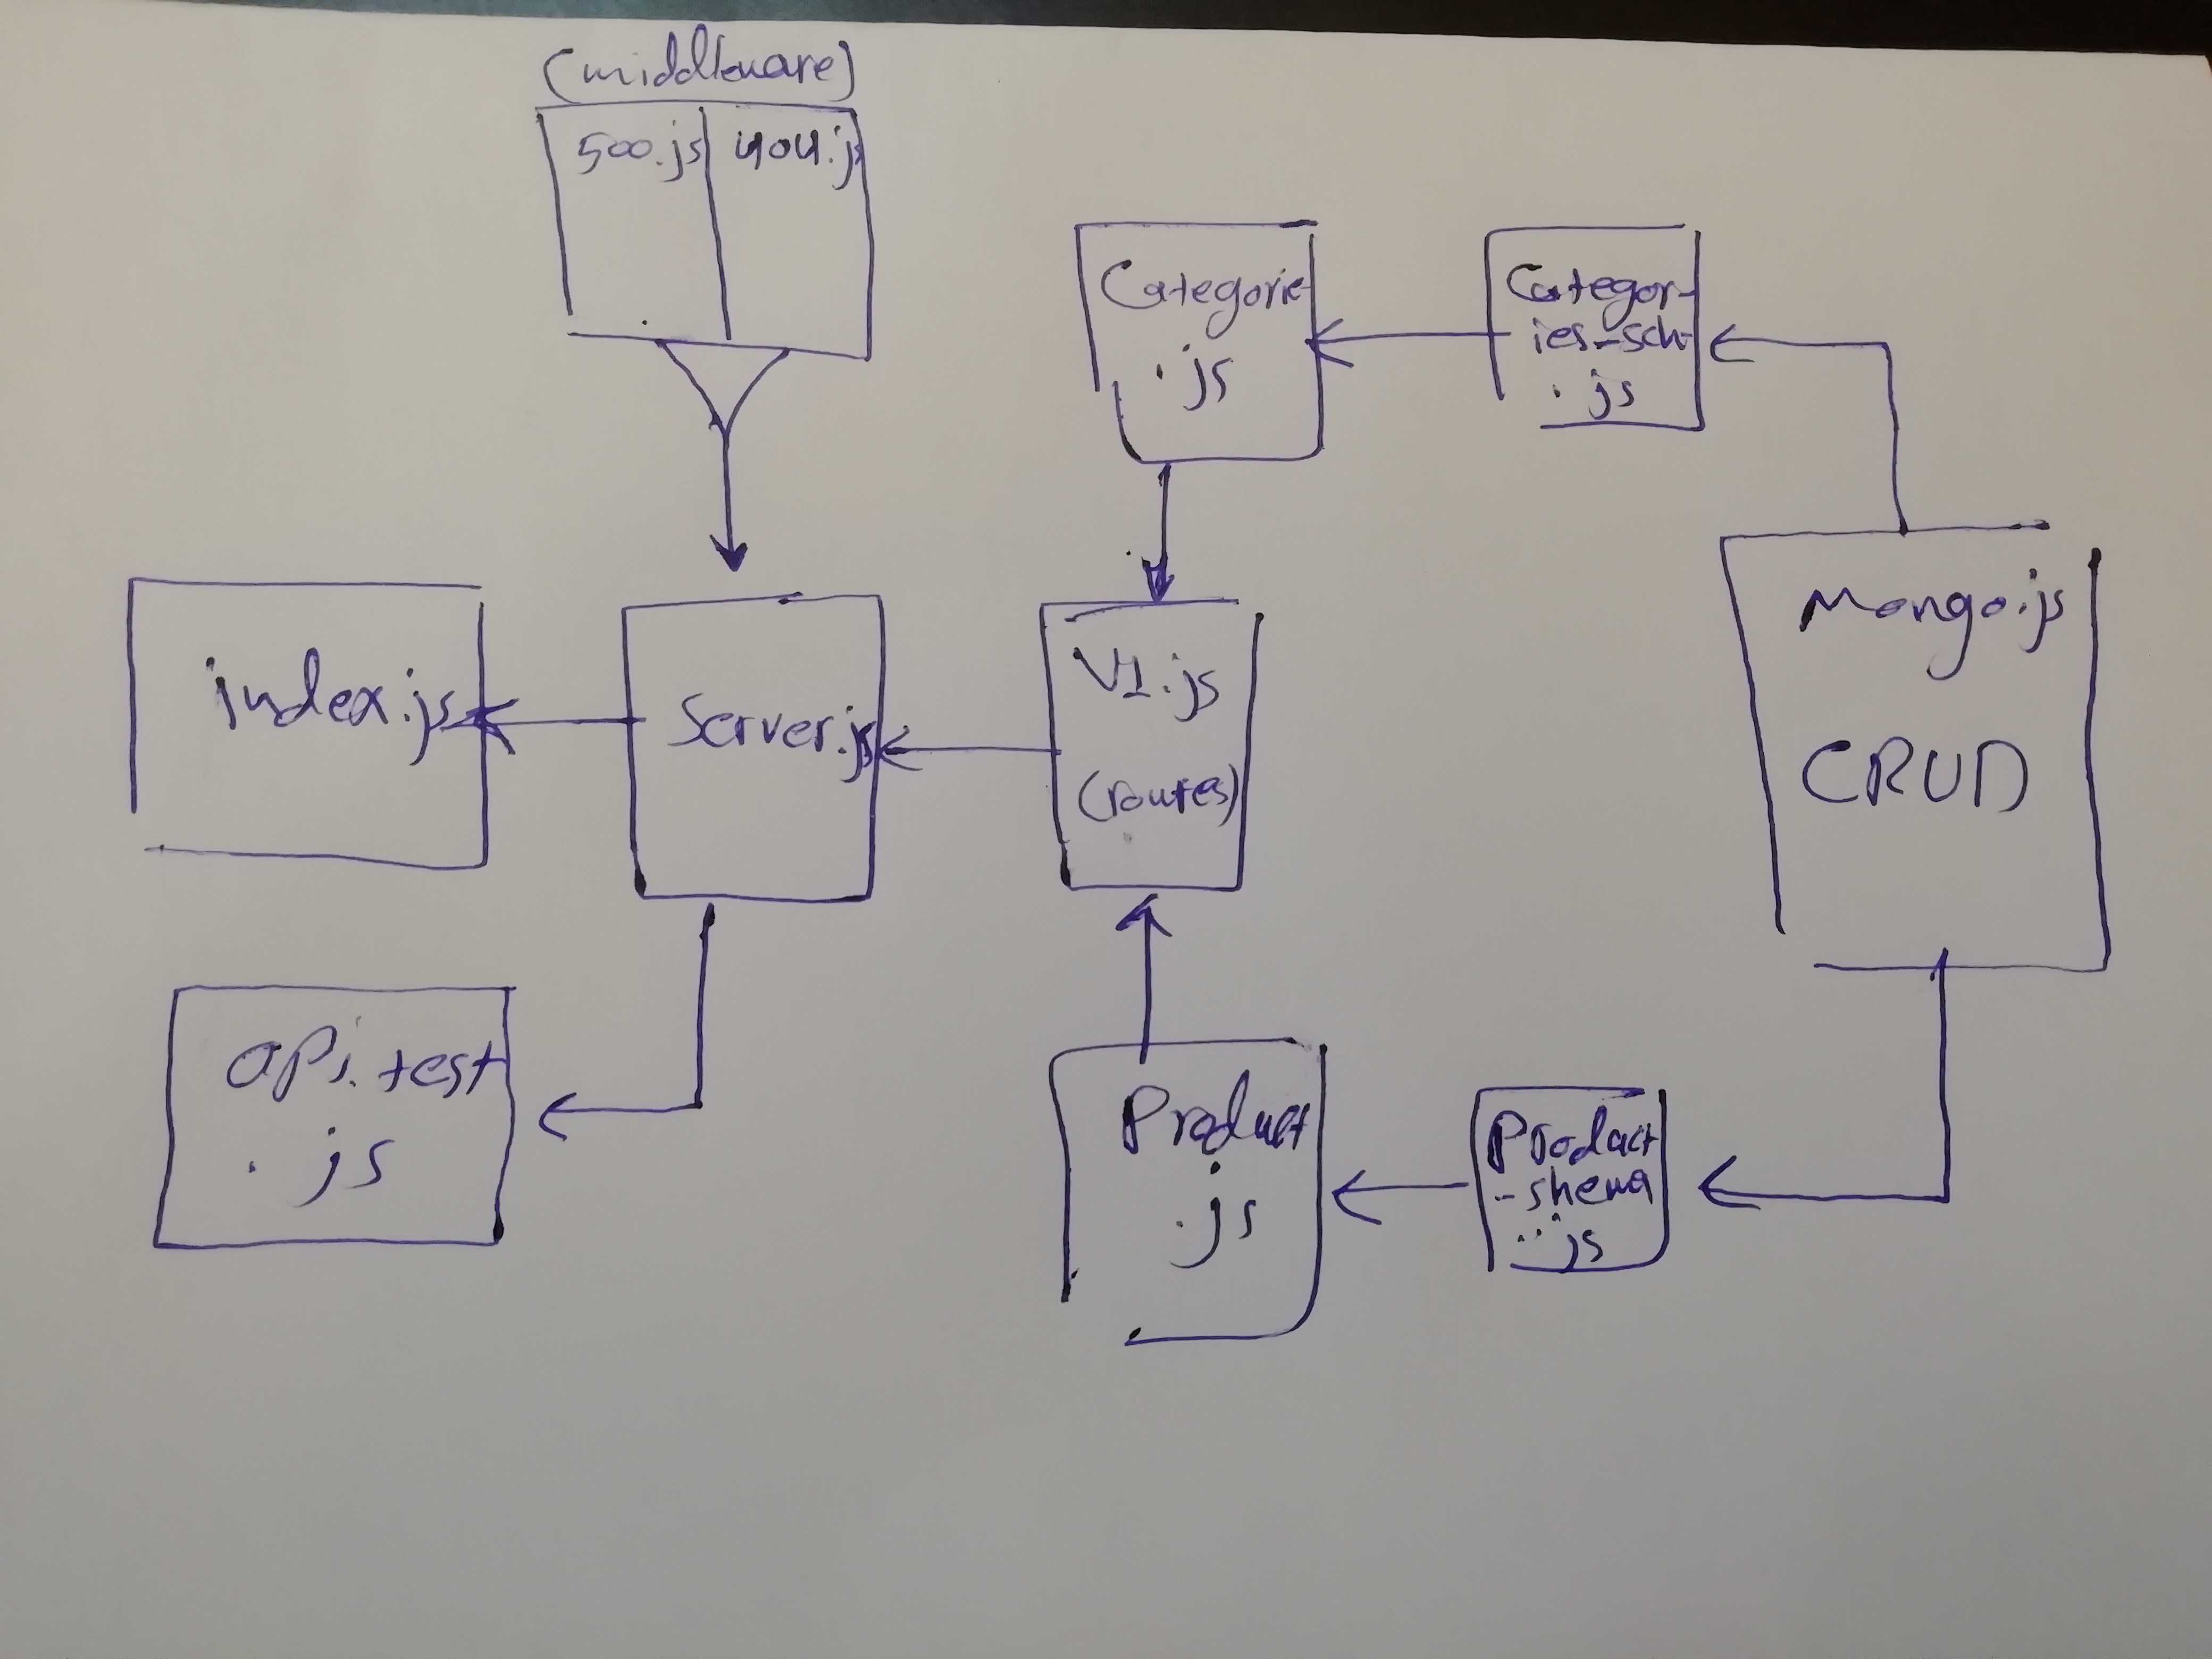 (middleware)
500.js
404.js
Categorie
.js
Categor-
ies-sch-
.js
index.js
Server.js
V1.js
(routes)
Mongo.js
CRUD
api.test
.js
Product
.js
Product
-shema
.js